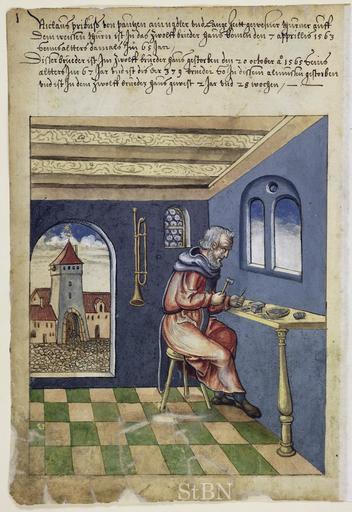 1
Niclaus pribus den pauzen ein nadler und lange zeitt gewesner thürner auff
dem weissen thurn ist In das zwolff brüder Haus kumen den 7 appryllis 1563
seines altters damals Im 65 Jar
Disser brüder ist Im zwolff brüeder haus gestorben den 20 october a 1565 seines
altters Im 67 Jar und ist der 179 brüder so In dissem almussen gestorben
und ist In dem zwolff brüder haus gwest 2 Jar und 28 wochen
StBN